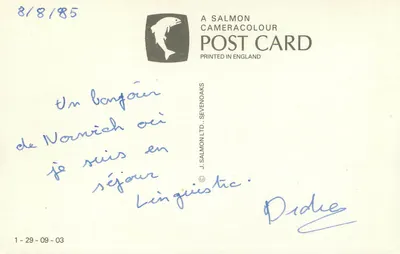 8/8/85
A SALMON
CAMERACOLOUR
POST CARD
PRINTED IN ENGLAND
Un bonjour
de Norwich où
je suis en
séjour
Linguistic.
© J. SALMON LTD., SEVENOAKS
1 - 29 - 09 - 03